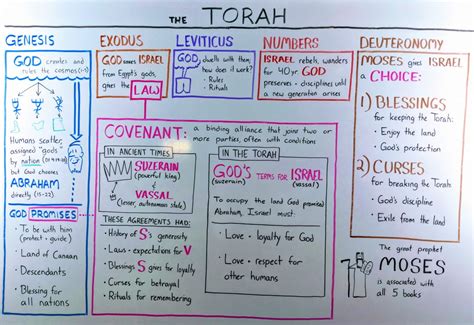 THE TORAH
GENESIS
GOD creates and
rules the cosmos (1-11)
Humans scatter,
assigned "gods"
by nation
but God chooses
ABRAHAM
directly (15-22)
GOD PROMISES
• To be with him
(protect + guide)
• Land of Canaan
• Descendants
• Blessing for
all nations
EXODUS
GOD saves ISRAEL
from Egypt's gods,
gives the LAW
LEVITICUS
GOD dwells with them,
how does it work?
• Rules
• Rituals
NUMBERS
ISRAEL rebels, wanders
for 40 yr. GOD
preserves + disciplines until
a new generation arises
COVENANT: a binding alliance that joins two or
more parties, often with conditions
IN ANCIENT TIMES
SUZERAIN
(powerful king)
+
VASSAL
(lesser, autonomous state)
THESE AGREEMENTS HAD:
• History of S's generosity
• Laws + expectations for V
• Blessings S gives for loyalty
• Curses for betrayal
• Rituals for remembering
IN THE TORAH
GOD'S TERMS FOR ISRAEL
(suzerain) (vassal)
To occupy the land God promised
Abraham, Israel must:
• Love + loyalty for God
• Love + respect for
other humans
DEUTERONOMY
MOSES gives ISRAEL
a CHOICE:
1) BLESSINGS
for keeping the Torah:
• Enjoy the land
• God's protection
2) CURSES
for breaking the Torah
• God's discipline
• Exile from the land
The great prophet
MOSES
is associated with
all 5 books